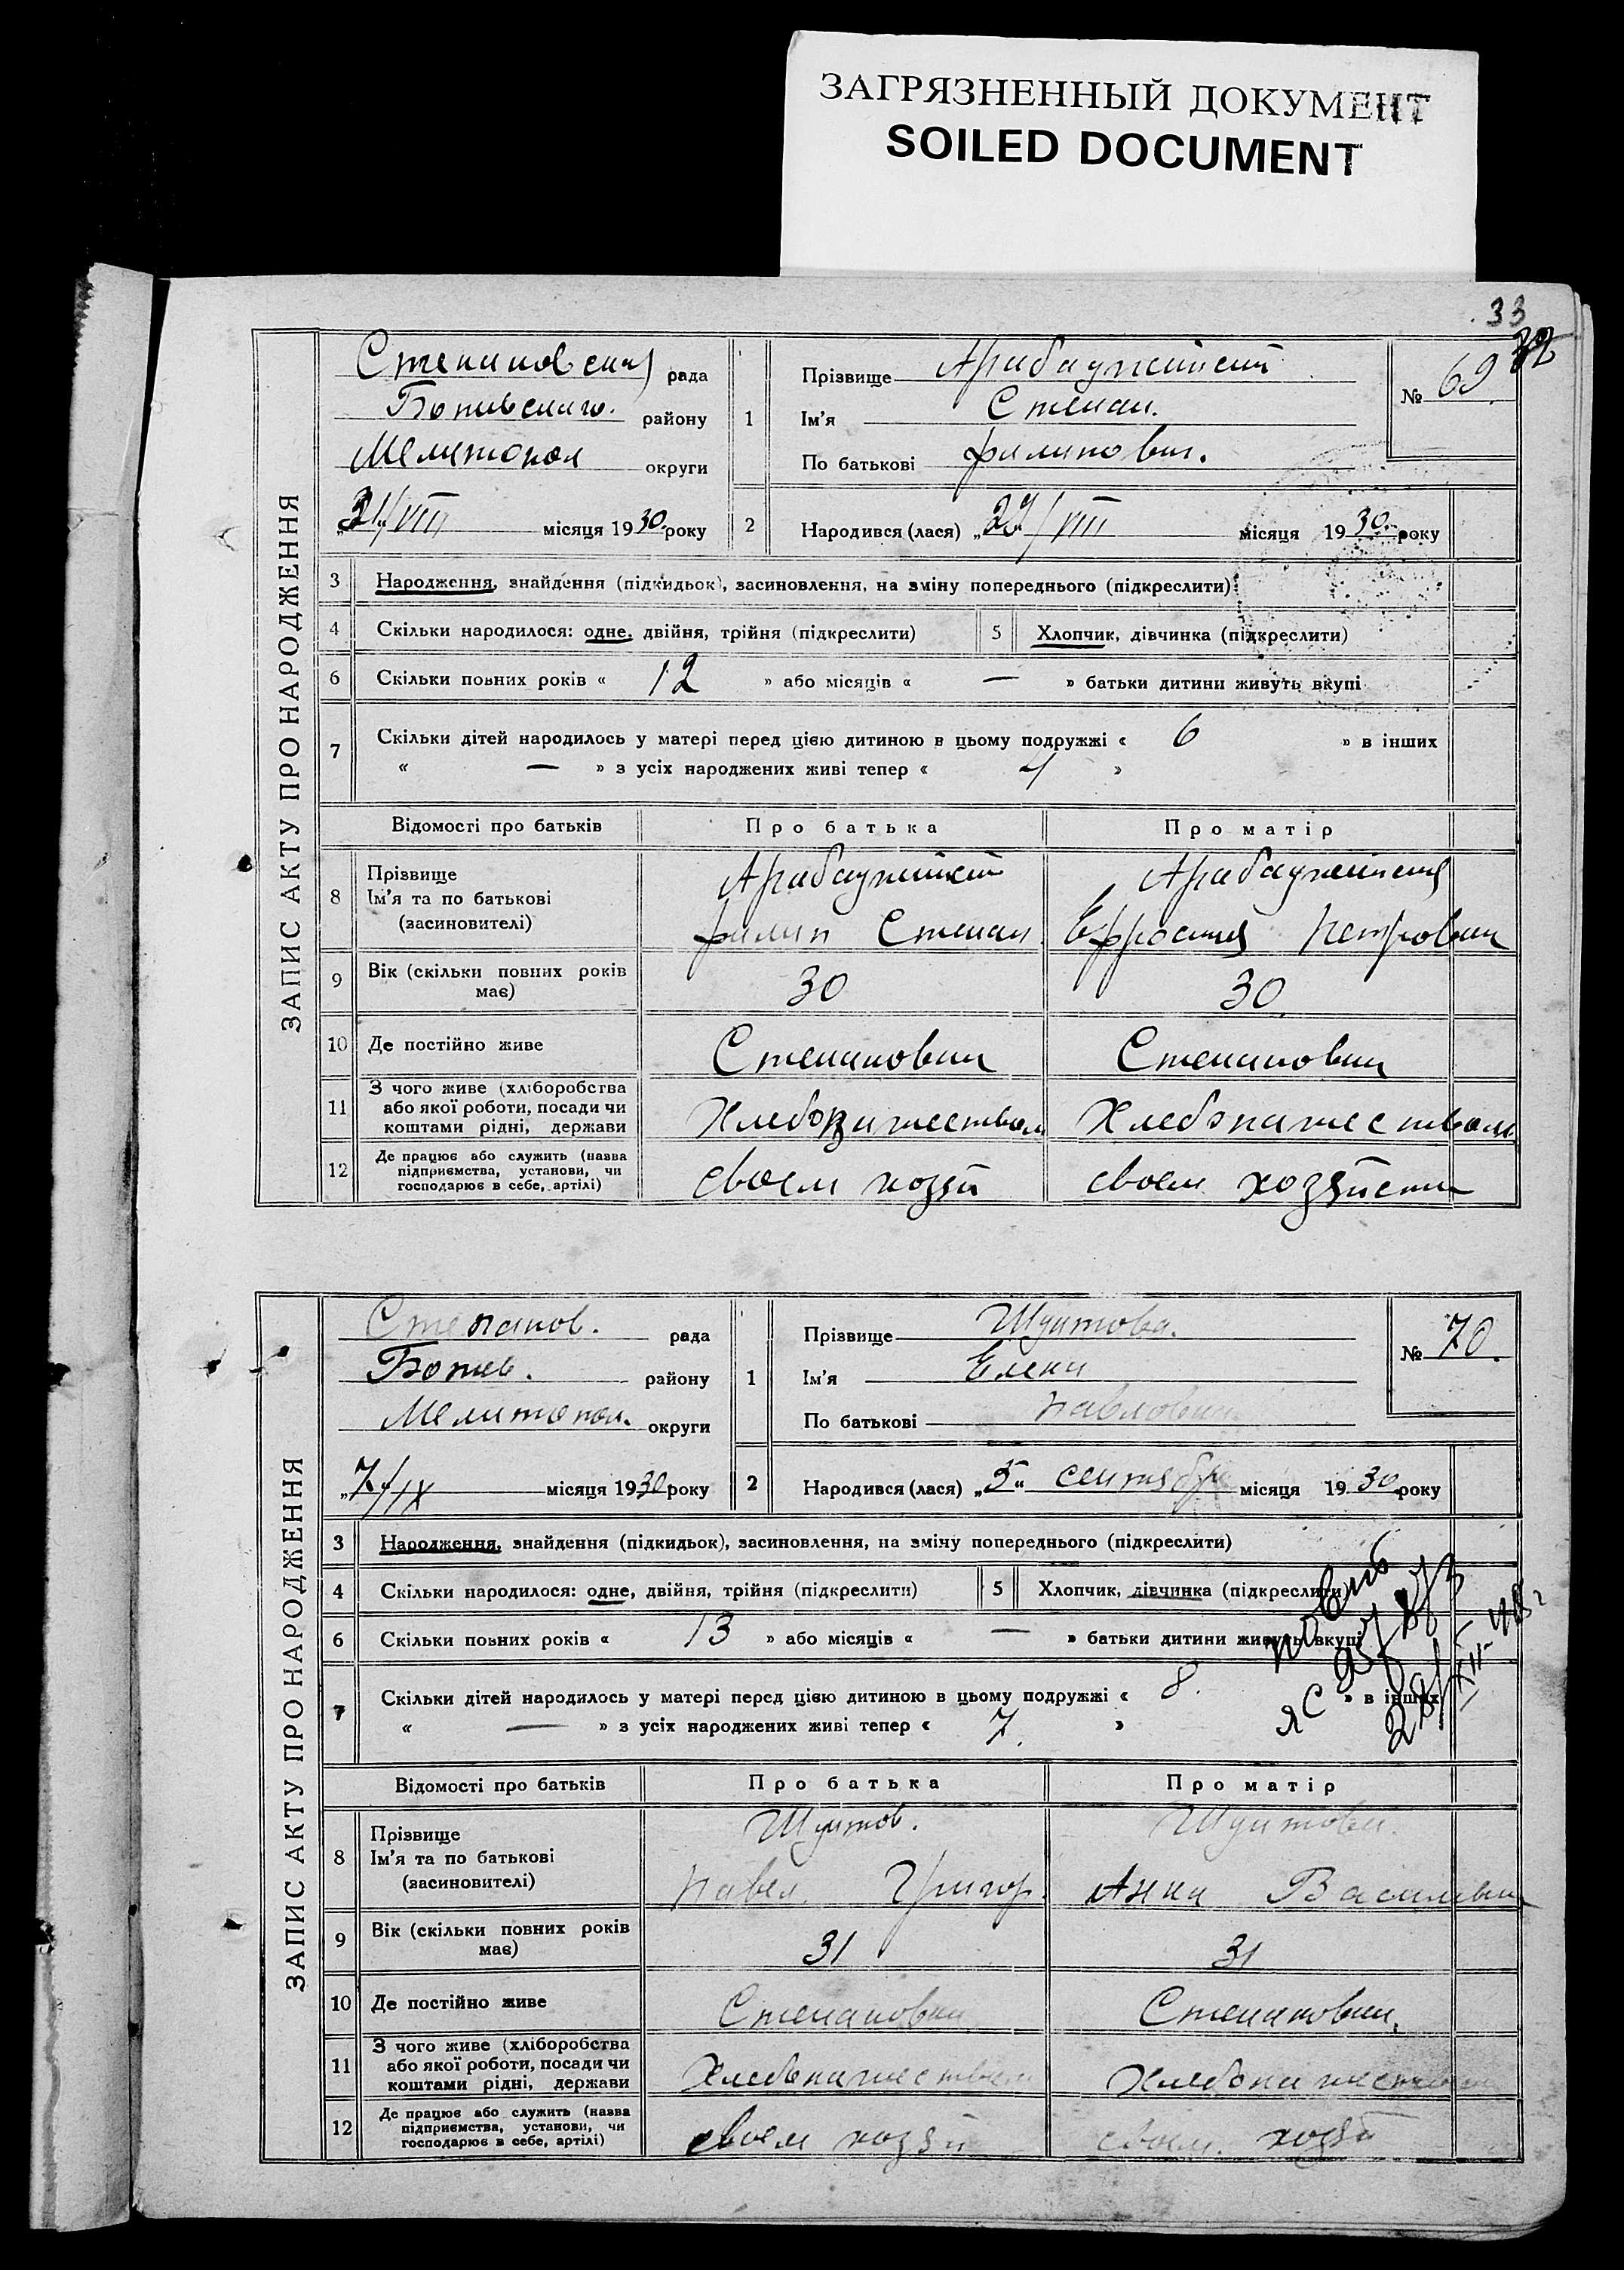 ЗАГРЯЗНЕННЫЙ ДОКУМЕНТ
SOILED DOCUMENT
33
32
ЗАПИС АКТУ ПРО НАРОДЖЕННЯ
Степановская рада
Ботивского району
Мелитопол округи
31/VIII місяця 1930 року
1
Прізвище
Ім'я Степан.
По батькові Филипович.
№ 69.
2 Народився (лася) „29/VIII місяця 1930 року
3 Народження, знайдення (підкидьок), засиновлення, на зміну попереднього (підкреслити)
4 Скільки народилося: одне, двійня, трійня (підкреслити) 5 Хлопчик, дівчинка (підкреслити)
6 Скільки повних років « 12 » або місяців « — » батьки дитини живуть вкупі
7 Скільки дітей народилось у матері перед цією дитиною в цьому подружжі « 6 » в інших
« — » з усіх народжених живі тепер « 4 »
Відомості про батьків Про батька Про матір
8 Прізвище
Ім'я та по батькові
(засиновителі)
Филип Степан. Ефросиня Петровна
9 Вік (скільки повних років має) 30 30.
10 Де постійно живе Степановка Степановка
11 З чого живе (хліборобства
або якої роботи, посади чи
коштами рідні, держави
Хлебопашеством Хлебопашеством
12 Де працює або служить (назва
підприємства, установи, чи
господарює в себе, артілі)
своем хозяй своем хозяйстве
ЗАПИС АКТУ ПРО НАРОДЖЕННЯ
Степанов. рада
Ботив. району
Мелитопол. округи
„7/IX місяця 1930 року
1
Прізвище Шуитова.
Ім'я Елена
По батькові Павловна
№ 70.
2 Народився (лася) „5" сентября місяця 1930 року
3 Народження, знайдення (підкидьок), засиновлення, на зміну попереднього (підкреслити)
4 Скільки народилося: одне, двійня, трійня (підкреслити) 5 Хлопчик, дівчинка (підкреслити)
6 Скільки повних років « 13 » або місяців « — » батьки дитини живуть вкупі
7 Скільки дітей народилось у матері перед цією дитиною в цьому подружжі « 8. » в інших
« — » з усіх народжених живі тепер « 7. »
Відомості про батьків Про батька Про матір
8 Прізвище
Ім'я та по батькові
(засиновителі)
Шуитов. Шуитова.
Павел. Григор. Анна Васильевна
9 Вік (скільки повних років має) 31 31
10 Де постійно живе Степановка Степановка.
11 З чого живе (хліборобства
або якої роботи, посади чи
коштами рідні, держави
Хлебопашеством Хлебопашеством
12 Де працює або служить (назва
підприємства, установи, чи
господарює в себе, артілі)
своем хозяй своем. хозяй